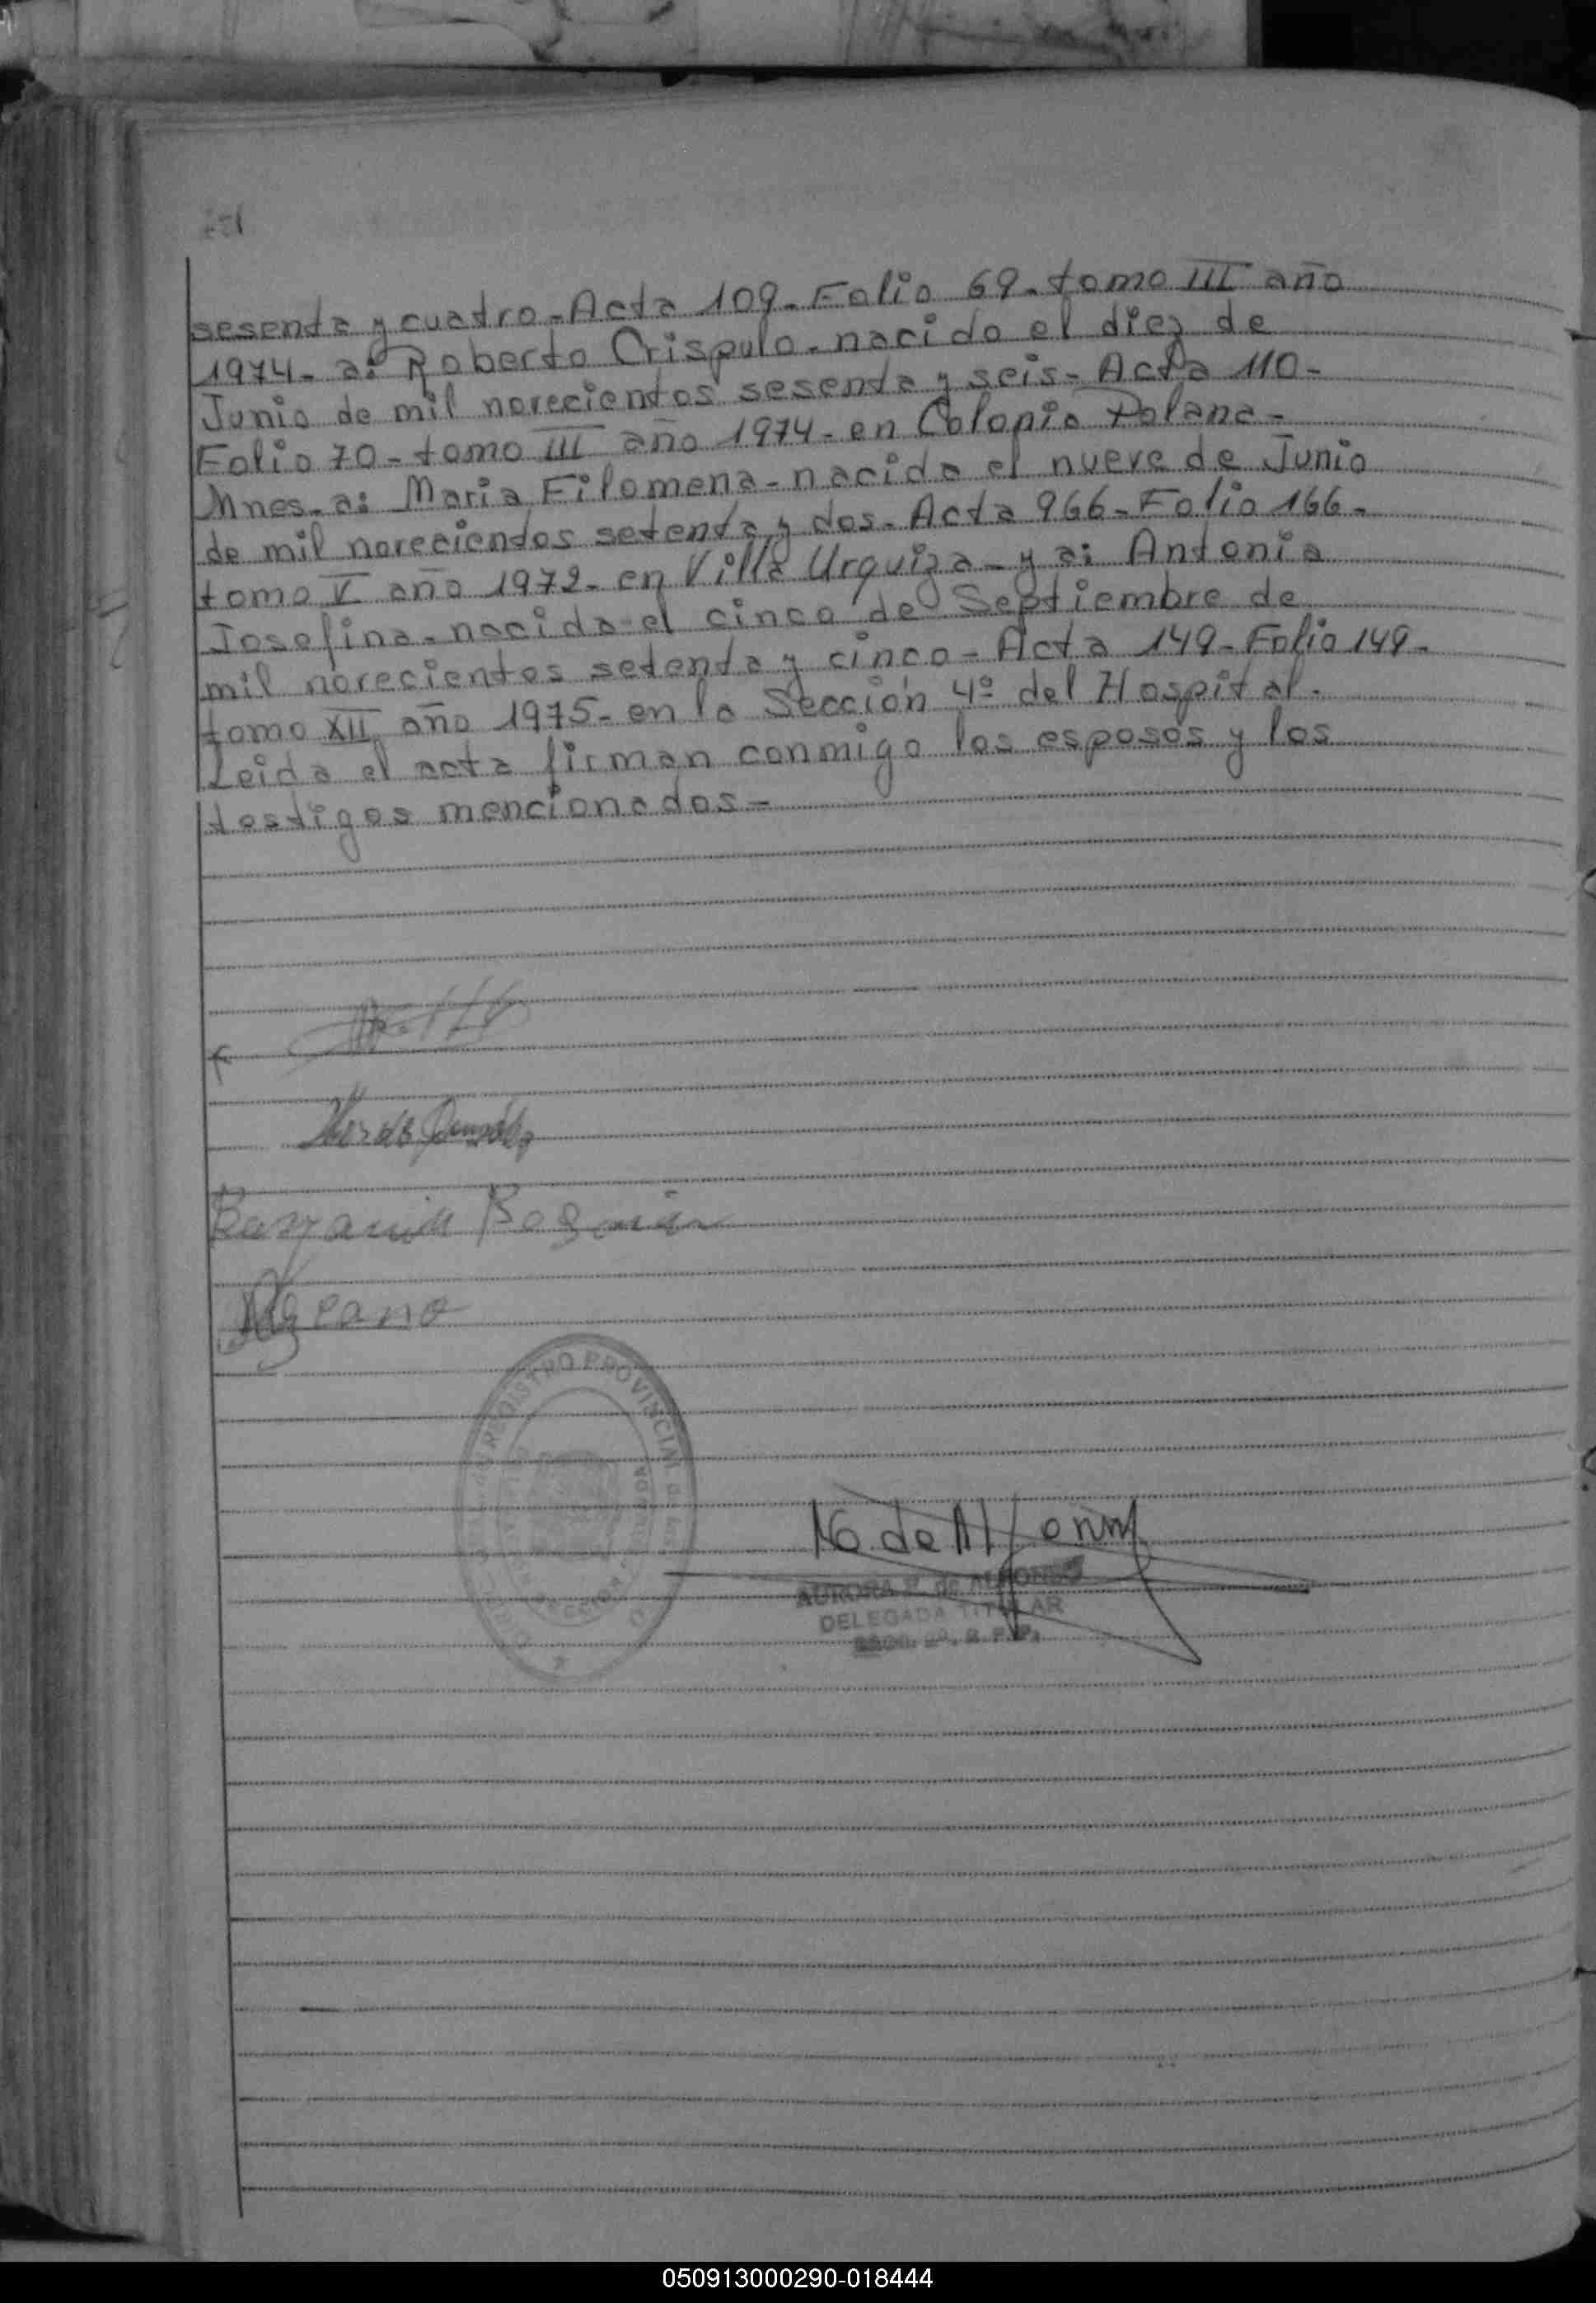 sesenta y cuatro - Acta 109 - Folio 69 - tomo III año
1974 - a: Roberto Crispulo - nacido el diez de
Junio de mil novecientos sesenta y seis - Acta 110 -
Folio 70 - tomo III año 1974 - en Colonia Polana -
Mnes - a: Maria Filomena - nacida el nueve de Junio
de mil novecientos setenta y dos - Acta 966 - Folio 166 -
tomo V año 1972 - en Villa Urquiza - y a: Antonia
Josefina - nacida el cinco de Septiembre de
mil novecientos setenta y cinco - Acta 149 - Folio 149 -
tomo XII año 1975 - en la Sección 4º del Hospital.
Leida el acta firman conmigo los esposos y los
testigos mencionados -
REGISTRO PROVINCIAL de las
AURORA P. de ALFONSO
DELEGADA TITULAR
050913000290-018444